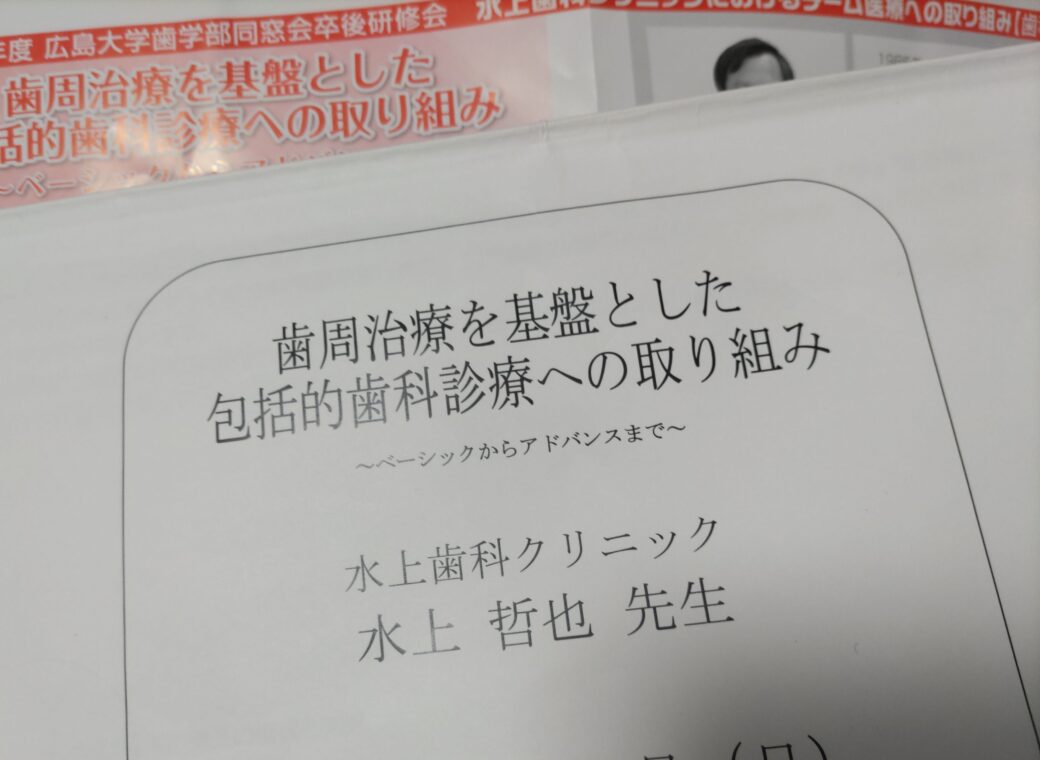 年度 広島大学歯学部同窓会卒後研修会
歯周治療を基盤とした
括的歯科診療への取り組み
水上歯科クリニックにおけるチーム医療への取り組み
歯周治療を基盤とした
包括的歯科診療への取り組み
～ベーシックからアドバンスまで～
水上歯科クリニック
水上 哲也 先生
(日)